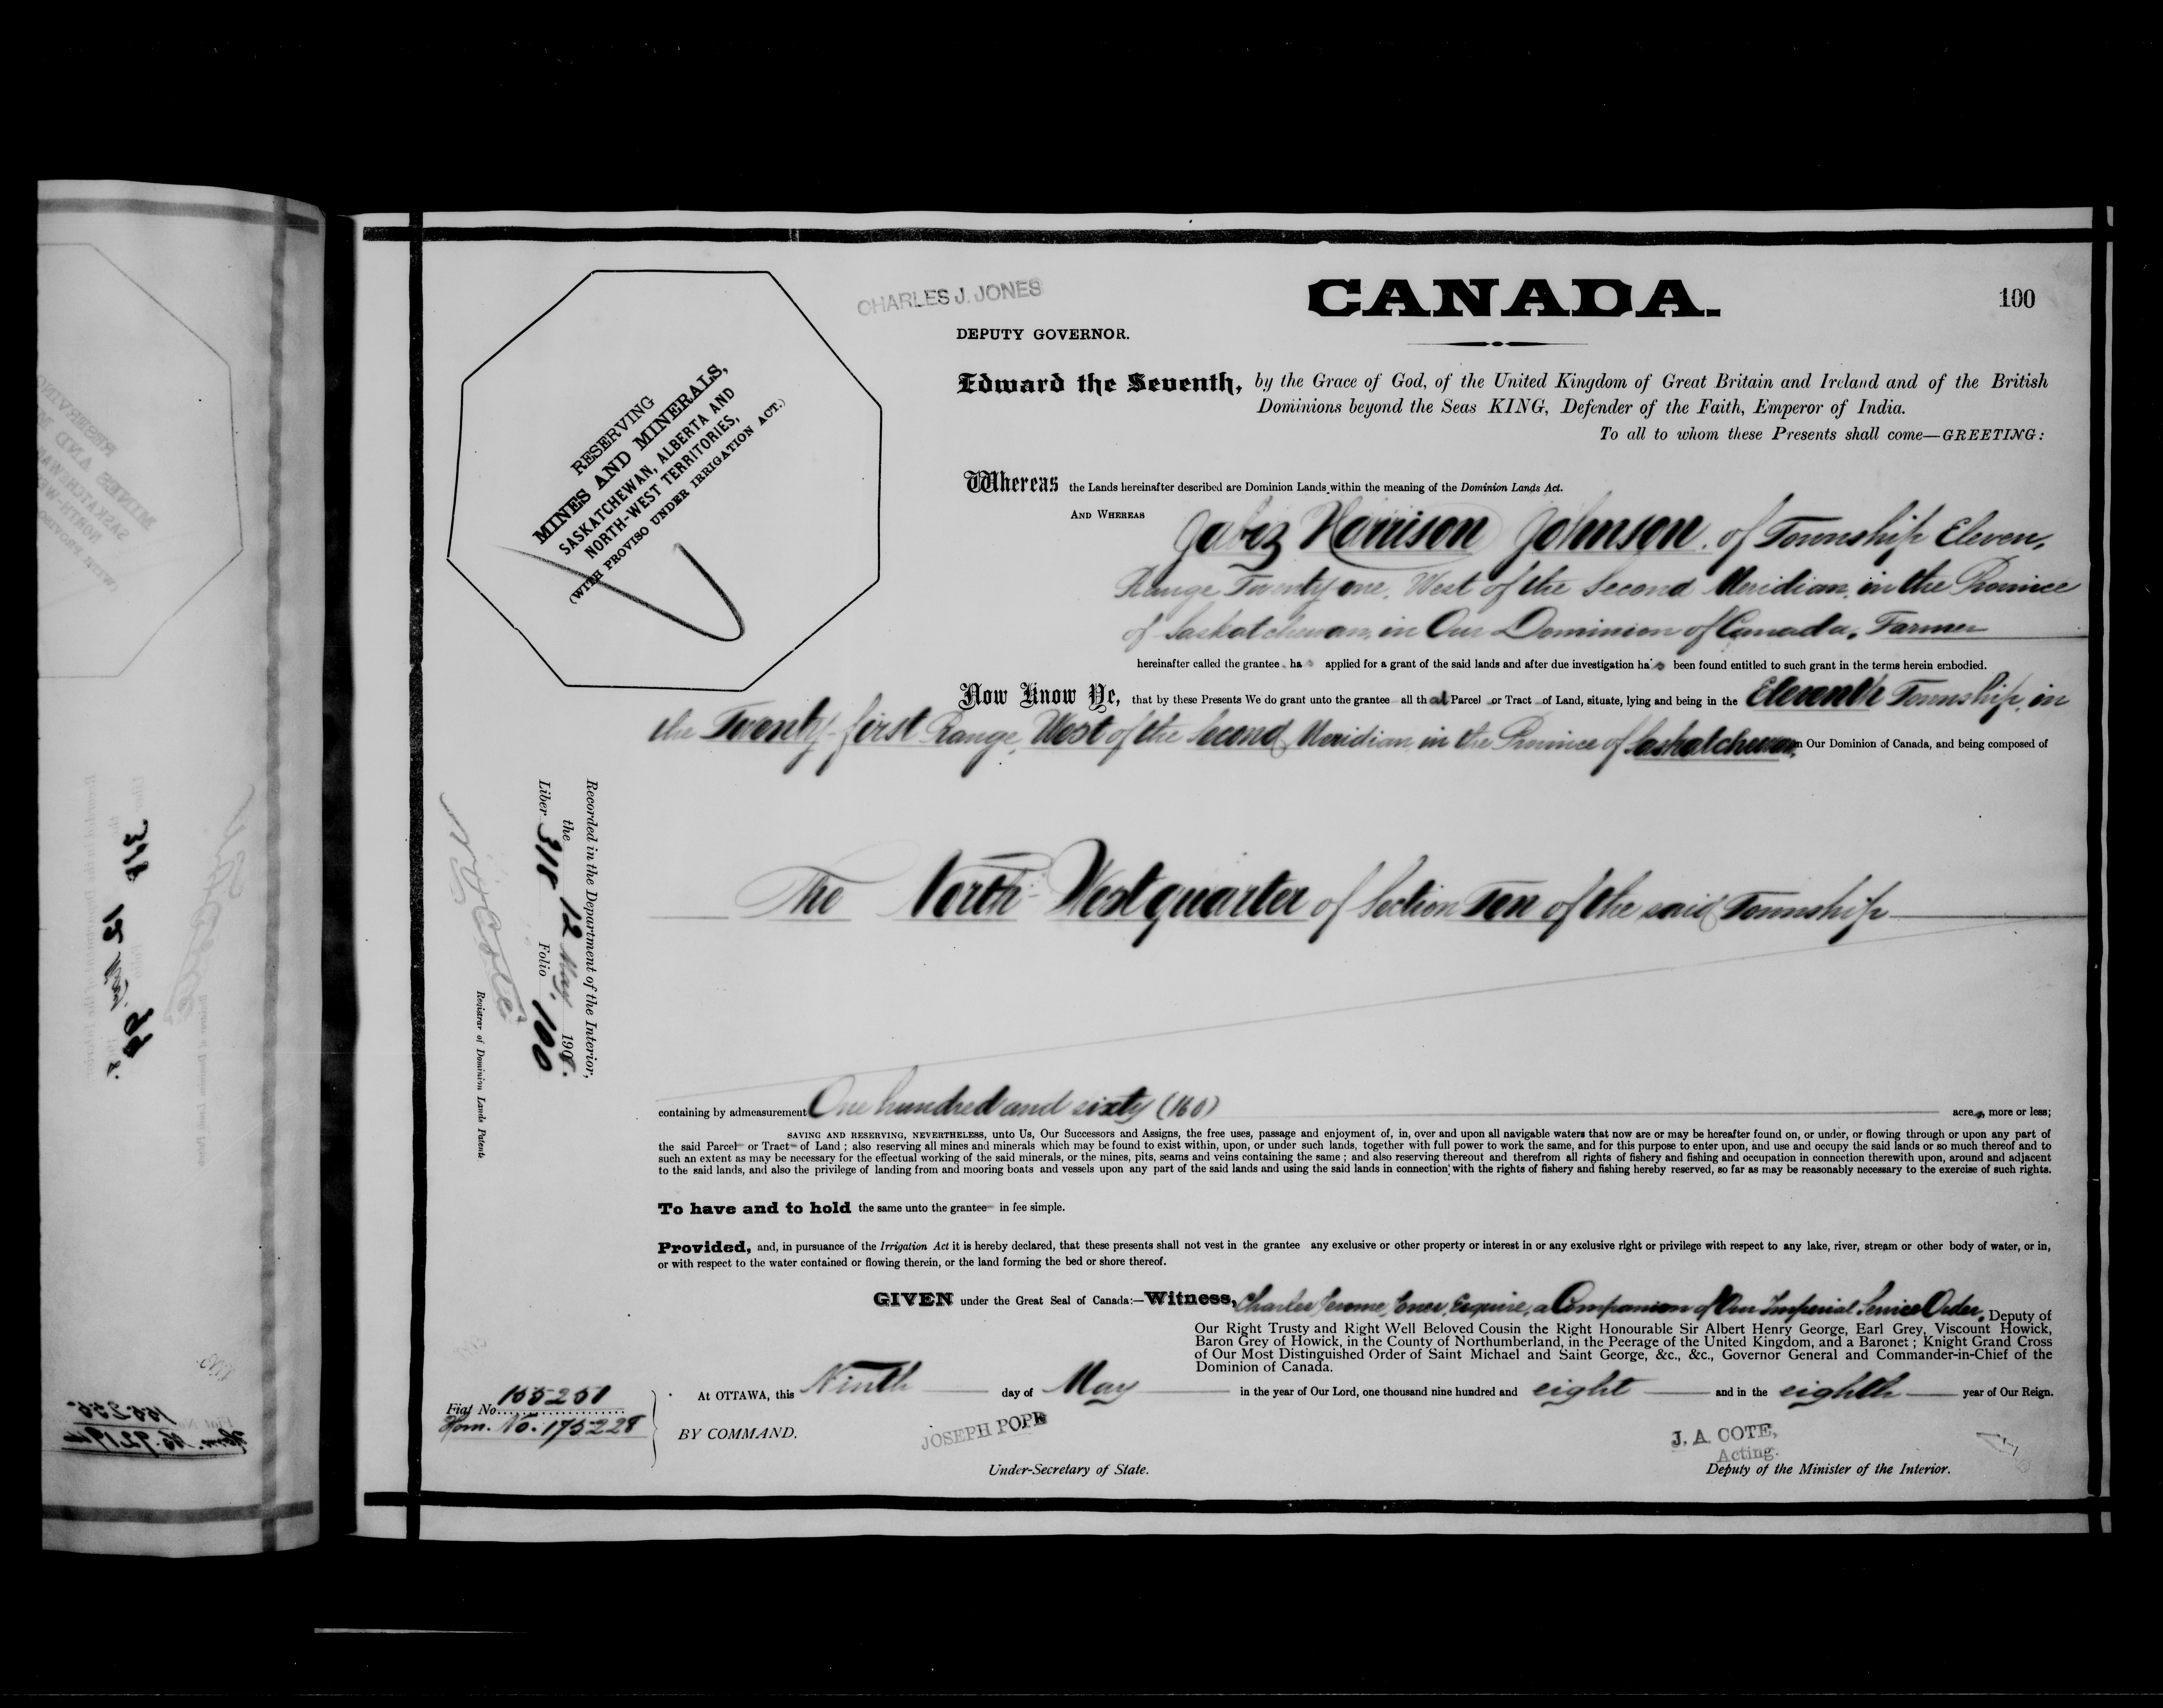 CHARLES J. JONES
CANADA.
100
DEPUTY GOVERNOR.
Edward the Seventh, by the Grace of God, of the United Kingdom of Great Britain and Ireland and of the British
Dominions beyond the Seas KING, Defender of the Faith, Emperor of India.
To all to whom these Presents shall come—GREETING:
RESERVING
MINES AND MINERALS,
SASKATCHEWAN, ALBERTA AND
NORTH-WEST TERRITORIES,
(WITH PROVISO UNDER IRRIGATION ACT.)
Whereas the Lands hereinafter described are Dominion Lands within the meaning of the Dominion Lands Act.
AND WHEREAS Jabez Harrison Johnson, of Township Eleven,
Range Twenty one, West of the Second Meridian, in the Province
of Saskatchewan, in Our Dominion of Canada, Farmer
hereinafter called the grantee has applied for a grant of the said lands and after due investigation has been found entitled to such grant in the terms herein embodied.
Now Know Ye, that by these Presents We do grant unto the grantee all that Parcel or Tract of Land, situate, lying and being in the Eleventh Township, in
the Twenty-first Range, West of the Second Meridian, in the Province of Saskatchewan, in Our Dominion of Canada, and being composed of
The North-West quarter of Section Ten of the said Township
Recorded in the Department of the Interior,
the 12 May, 1908.
Liber 318 Folio 100
N. O. Cote
Registrar of Dominion Lands Patents
containing by admeasurement One hundred and sixty (160) acres, more or less;
SAVING AND RESERVING, NEVERTHELESS, unto Us, Our Successors and Assigns, the free uses, passage and enjoyment of, in, over and upon all navigable waters that now are or may be hereafter found on, or under, or flowing through or upon any part of
the said Parcel or Tract of Land; also reserving all mines and minerals which may be found to exist within, upon, or under such lands, together with full power to work the same, and for this purpose to enter upon, and use and occupy the said lands or so much thereof and to
such an extent as may be necessary for the effectual working of the said minerals, or the mines, pits, seams and veins containing the same; and also reserving thereout and therefrom all rights of fishery and fishing and occupation in connection therewith upon, around and adjacent
to the said lands, and also the privilege of landing from and mooring boats and vessels upon any part of the said lands and using the said lands in connection with the rights of fishery and fishing hereby reserved, so far as may be reasonably necessary to the exercise of such rights.
To have and to hold the same unto the grantee in fee simple.
Provided, and, in pursuance of the Irrigation Act it is hereby declared, that these presents shall not vest in the grantee any exclusive or other property or interest in or any exclusive right or privilege with respect to any lake, river, stream or other body of water, or in,
or with respect to the water contained or flowing therein, or the land forming the bed or shore thereof.
GIVEN under the Great Seal of Canada:—Witness, Charles Jerome Jones, Esquire, a Companion of Our Imperial Service Order, Deputy of
Our Right Trusty and Right Well Beloved Cousin the Right Honourable Sir Albert Henry George, Earl Grey, Viscount Howick,
Baron Grey of Howick, in the County of Northumberland, in the Peerage of the United Kingdom, and a Baronet; Knight Grand Cross
of Our Most Distinguished Order of Saint Michael and Saint George, &c., &c., Governor General and Commander-in-Chief of the
Dominion of Canada.
At OTTAWA, this Ninth day of May in the year of Our Lord, one thousand nine hundred and eight and in the eighth year of Our Reign.
Fiat No. 155251
Hom. No. 175228
BY COMMAND.
JOSEPH POPE
Under-Secretary of State.
J. A. COTE,
Acting.
Deputy of the Minister of the Interior.